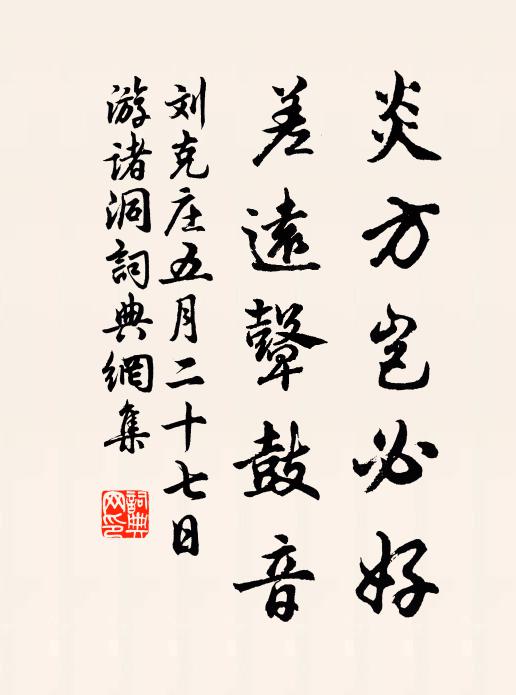 炎方岂必好
差遠鼙鼓音
刘克庄五月二十七日
游诸洞詞典網集
詞典网印